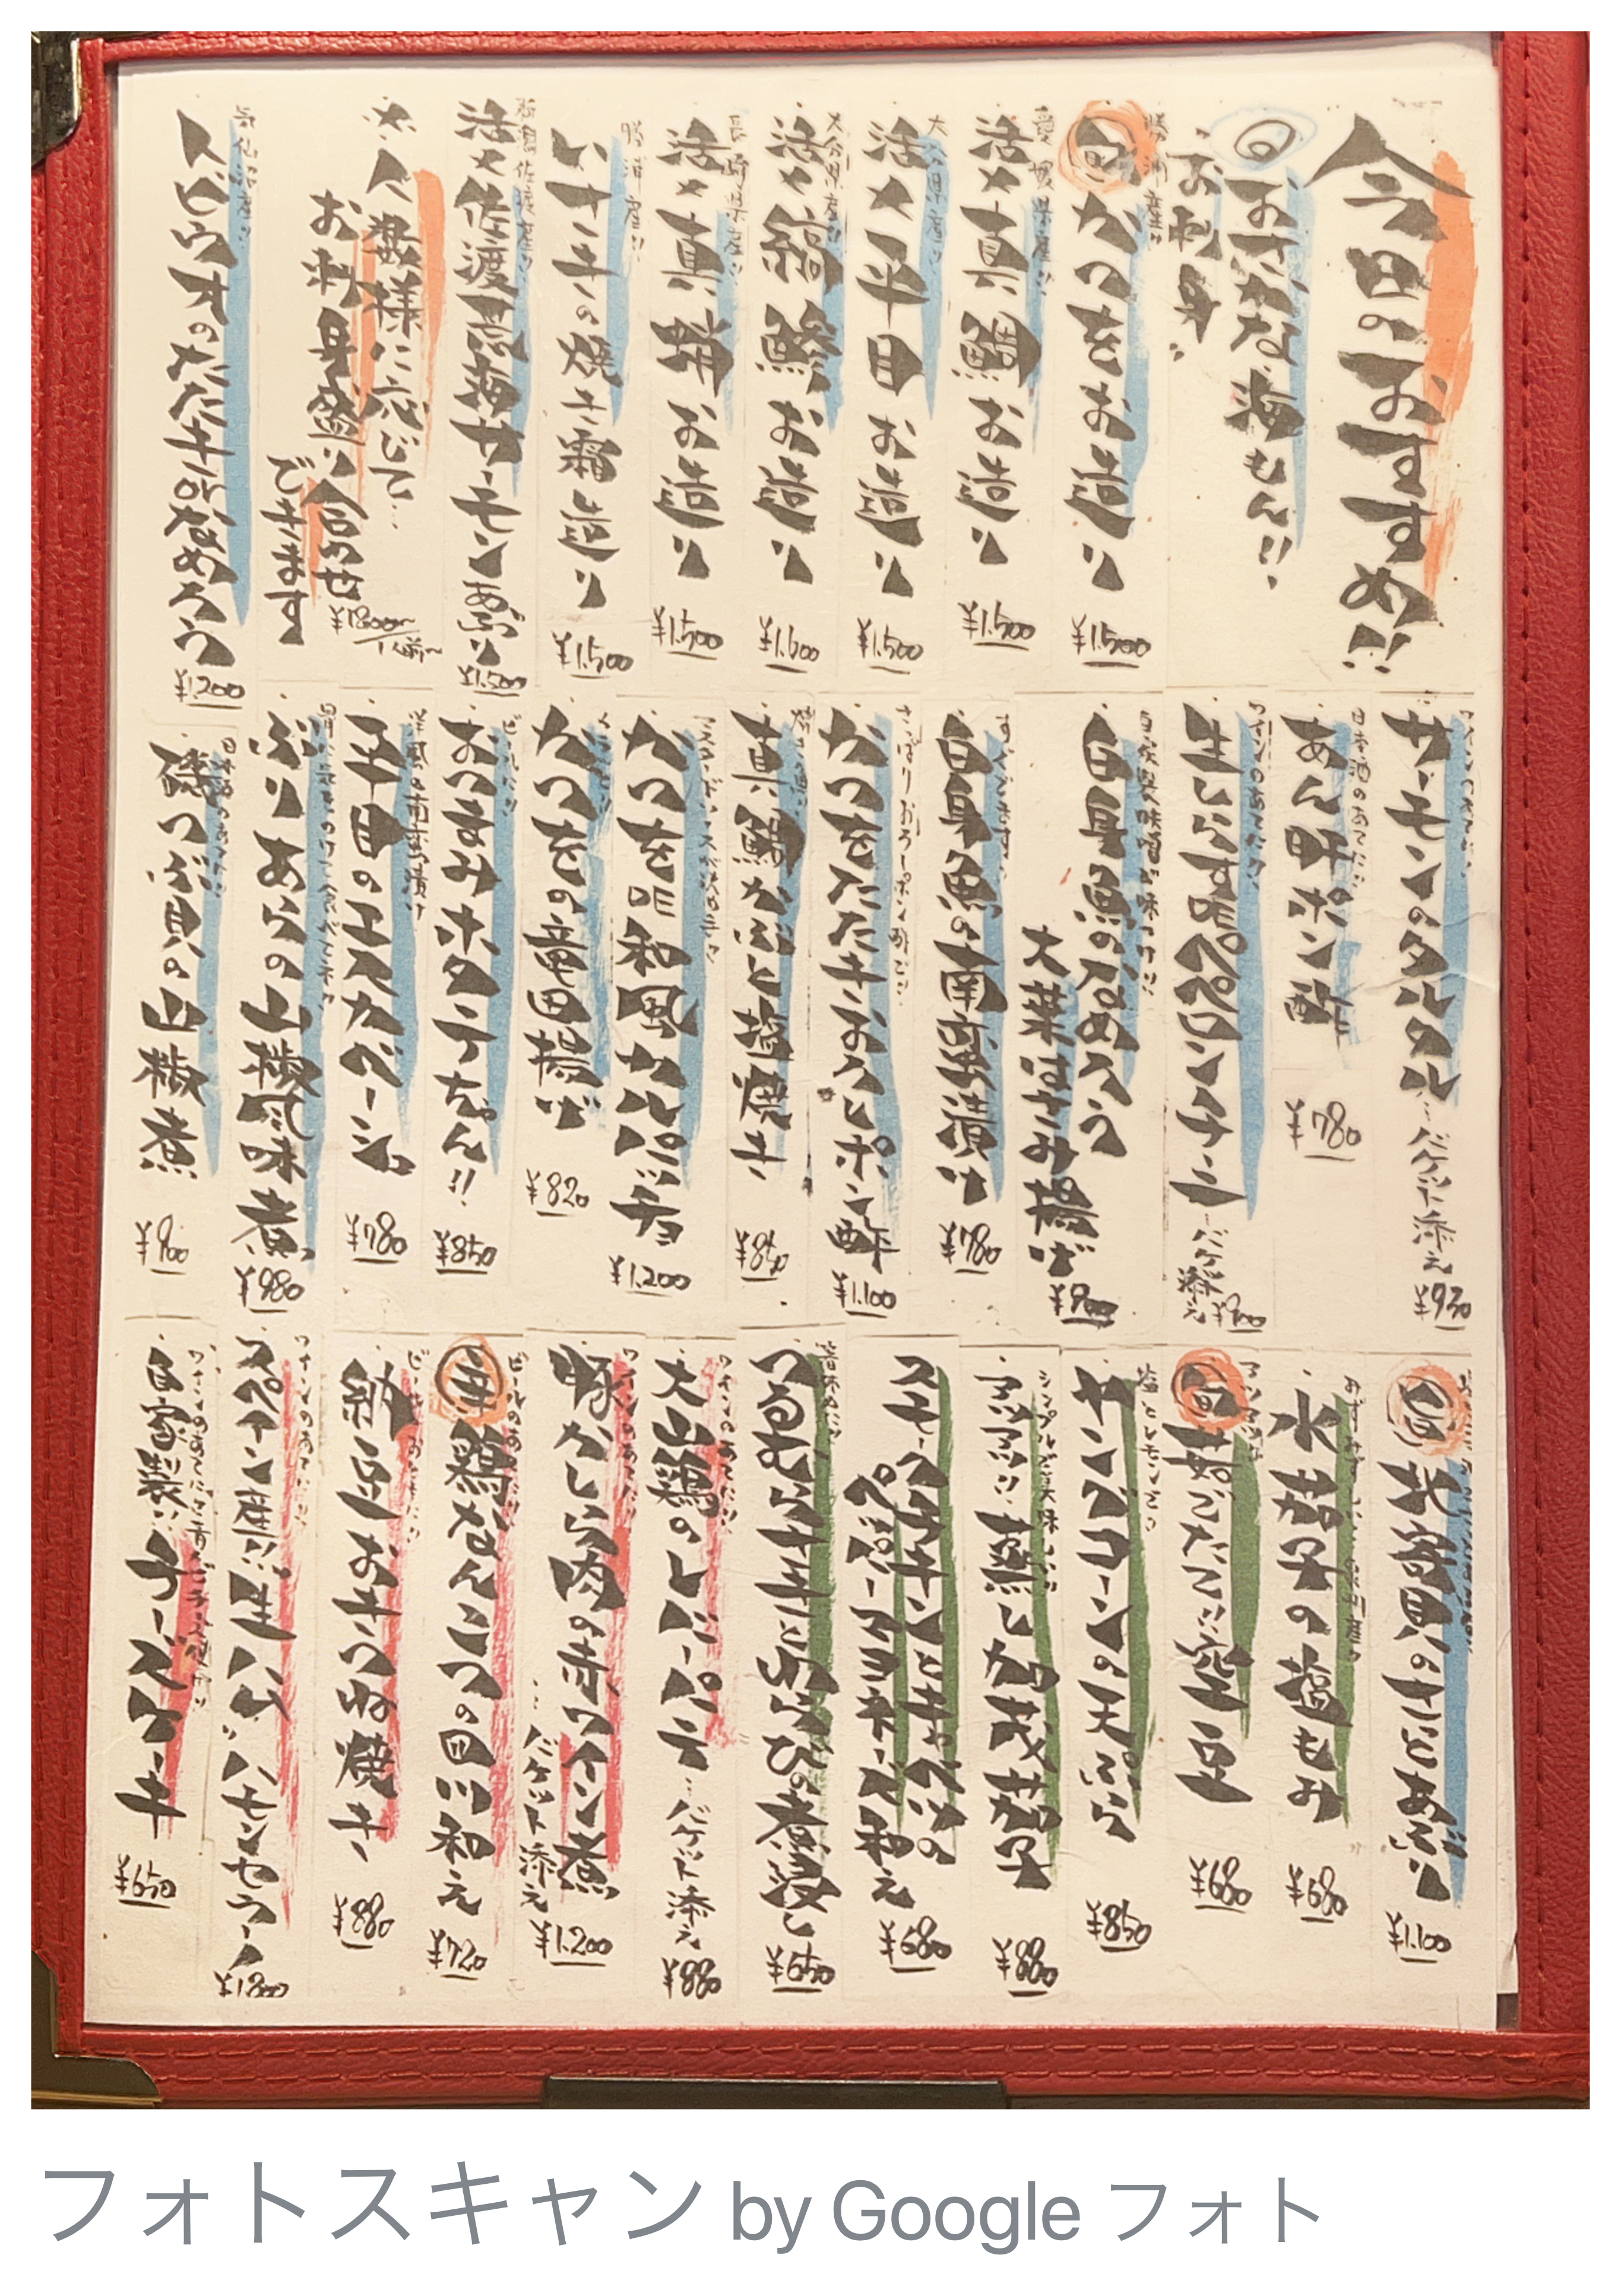 今日のおすすめ!!
旬 おさかな 海もん!!
お刺身
勝浦産!!
旬 かつをお造り
¥1.500
愛媛県産!!
活〆真鯛お造り
¥1.500
大分県産!!
活〆平目お造り
¥1.500
大分県産!!
活〆縞鯵お造り
長崎県産!!
活〆真鯖お造り
¥1.500
勝浦産!!
いサキの焼き霜造り
¥1.500
新潟佐渡産!!
活〆佐渡荒海サーモンあぶり
¥1.500
※人数様に応じて…
お刺身盛り合わせ
できます
¥1800〜/1人前〜
気仙沼産!!
トビウオのたたき和なめろう
¥1.200
サーモンのタルタル…バゲット添え
¥930
日本酒のあてに!!
あん肝ポン酢
¥780
ワインのあてに!!
生しらす昨ペペロンチーニ…バゲ添え
¥900
自家製味噌が味つけ!!
白身魚のなめろう
大葉はさみ揚げ
¥900
すぐでます!!
白身魚の南蛮漬け
¥780
さっぱりおろしポン酢で!!
かつをたたきおろしポン酢
¥1.100
真鯛かぶと塩焼き
¥850
マスタードソースが決め手!!
かつを 和風カルパッチョ
¥1.200
かつをの竜田揚げ
¥820
ビールに!!
おつまみホタテ天ぷら!!
¥850
洋風な南蛮漬け
平目のエスカベーシュ
¥780
ぶりあらの山椒風味煮
¥980
日本酒のあてに!!
磯つぶ貝の山椒煮
¥900
旬 北寄貝のさとあぶり
¥1.100
水茄子の塩もみ
¥680
旬 茹でたて!!空豆
¥680
塩とレモンで!!
ヤングコーンの天ぷら
¥850
シンプルで美味しい!!
アツアツ!!蒸し加茂茄子
¥880
スモークチキンとキャベツの
ペッパーマヨネーズ和え
¥680
箸休めに!!
つるむらさきとわらびの煮浸し
¥650
ワインのあてに!!
大山鶏のレバーパテ…バゲット添え
¥880
ワインのあてに!!
豚かしら肉の赤ワイン煮
…バゲット添え
¥1.200
ビールのあてに!!
鶏なんこつの梅和え
¥720
納豆おきつね焼き
¥880
ワインのあてに!!
スペイン産!!生ハム"ハモンセラーノ
¥1.800
自家製!!チーズケーキ
¥650
フォトスキャン by Google フォト